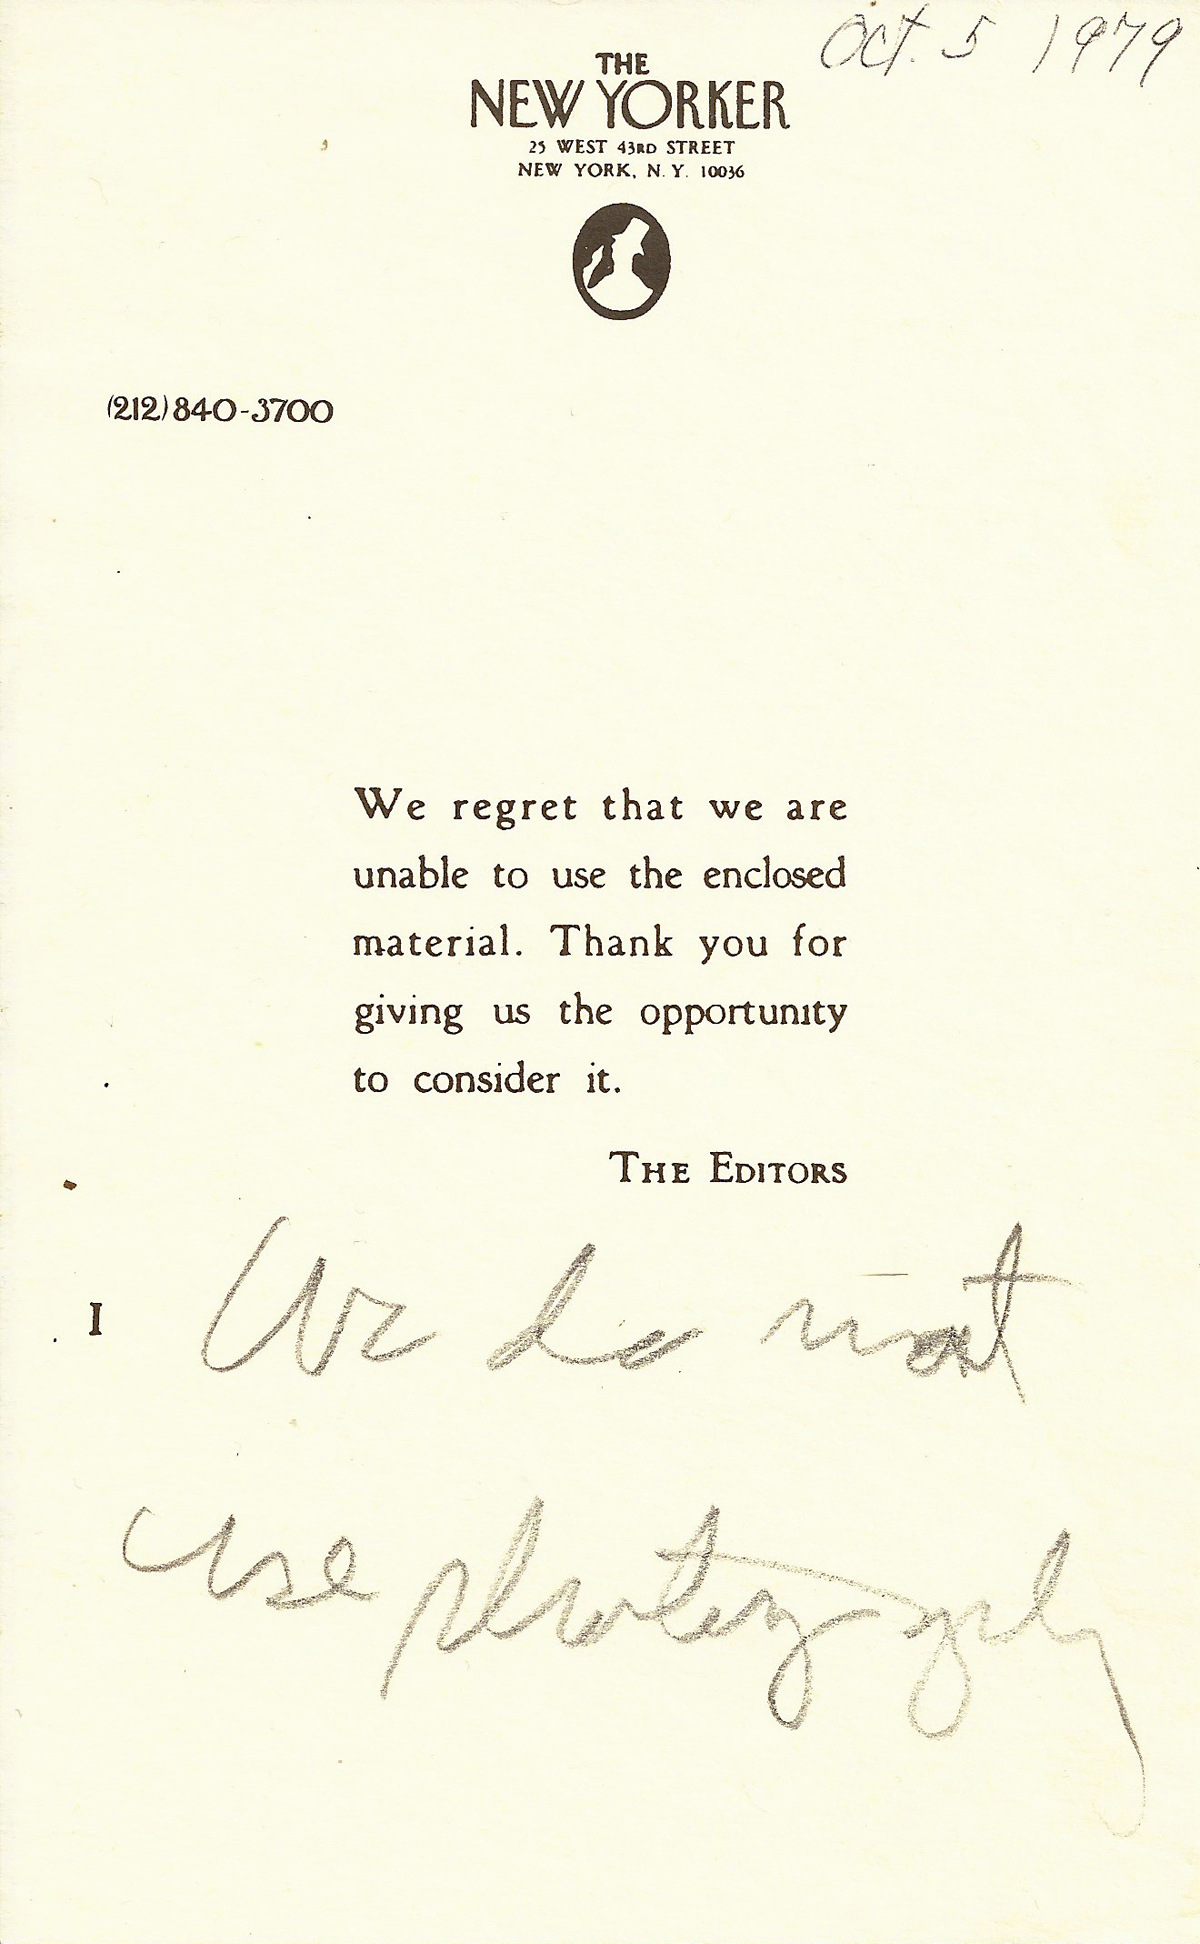 Oct. 5 1979
THE
NEW YORKER
25 WEST 43RD STREET
NEW YORK, N.Y. 10036
(212) 840-3700
We regret that we are
unable to use the enclosed
material. Thank you for
giving us the opportunity
to consider it.
THE EDITORS
I
We do not
use photography